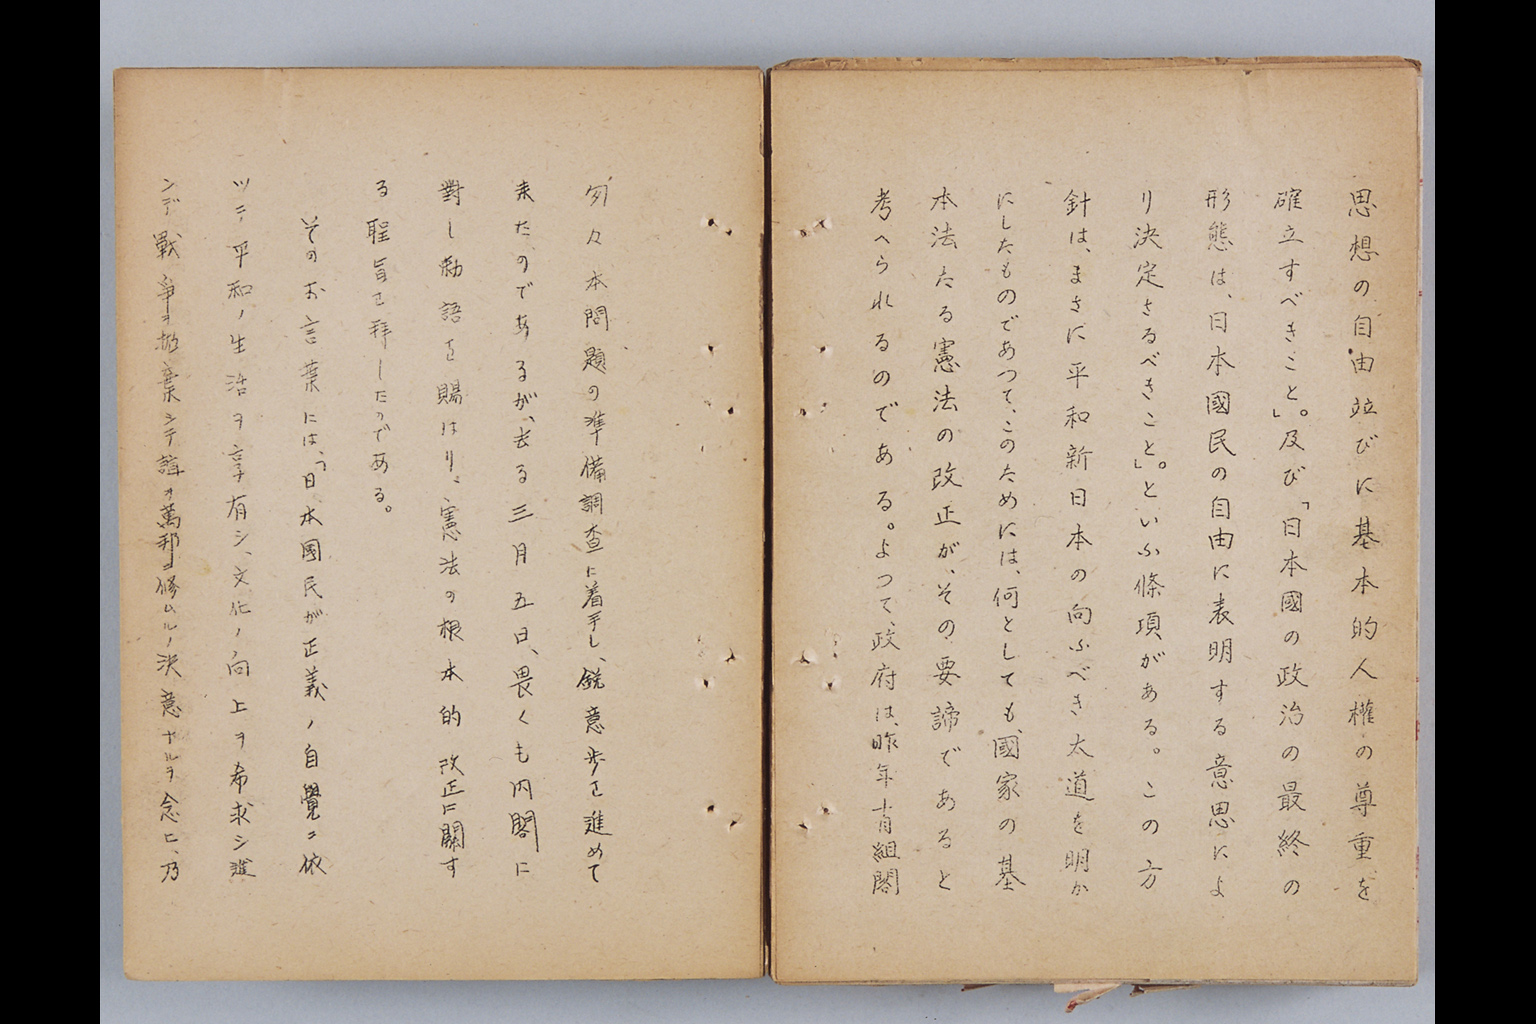 思想の自由並びに基本的人権の尊重を
確立すべきこと」。及び「日本國の政治の最終の
形態は、日本國民の自由に表明する意思によ
り決定さるべきこと」。といふ條項がある。この方
針は、まさに平和新日本の向ふべき大道を明か
にしたものであつて、このためには、何としても國家の基
本法たる憲法の改正が、その要諦であると
考へられるのである。よつて、政府は、昨年十月組閣
匆々本問題の準備調査に着手し、鋭意歩を進めて
来たのであるが、去る三月五日、畏くも内閣に
對し勅語を賜はり、憲法の根本的改正に關す
る聖旨を拜したのである。
そのお言葉には、「日本國民が正義ノ自覺ニ依
ツテ平和ノ生活ヲ享有シ、文化ノ向上ヲ希求シ進
ンデ戰爭ヲ抛棄シテ誼ヲ萬邦ニ修ムルノ決意ナルヲ念ヒ、乃